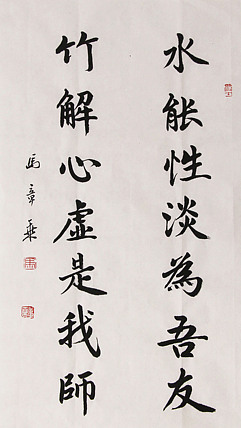 水能性淡為吾友
竹解心虛是我師
馬章乘